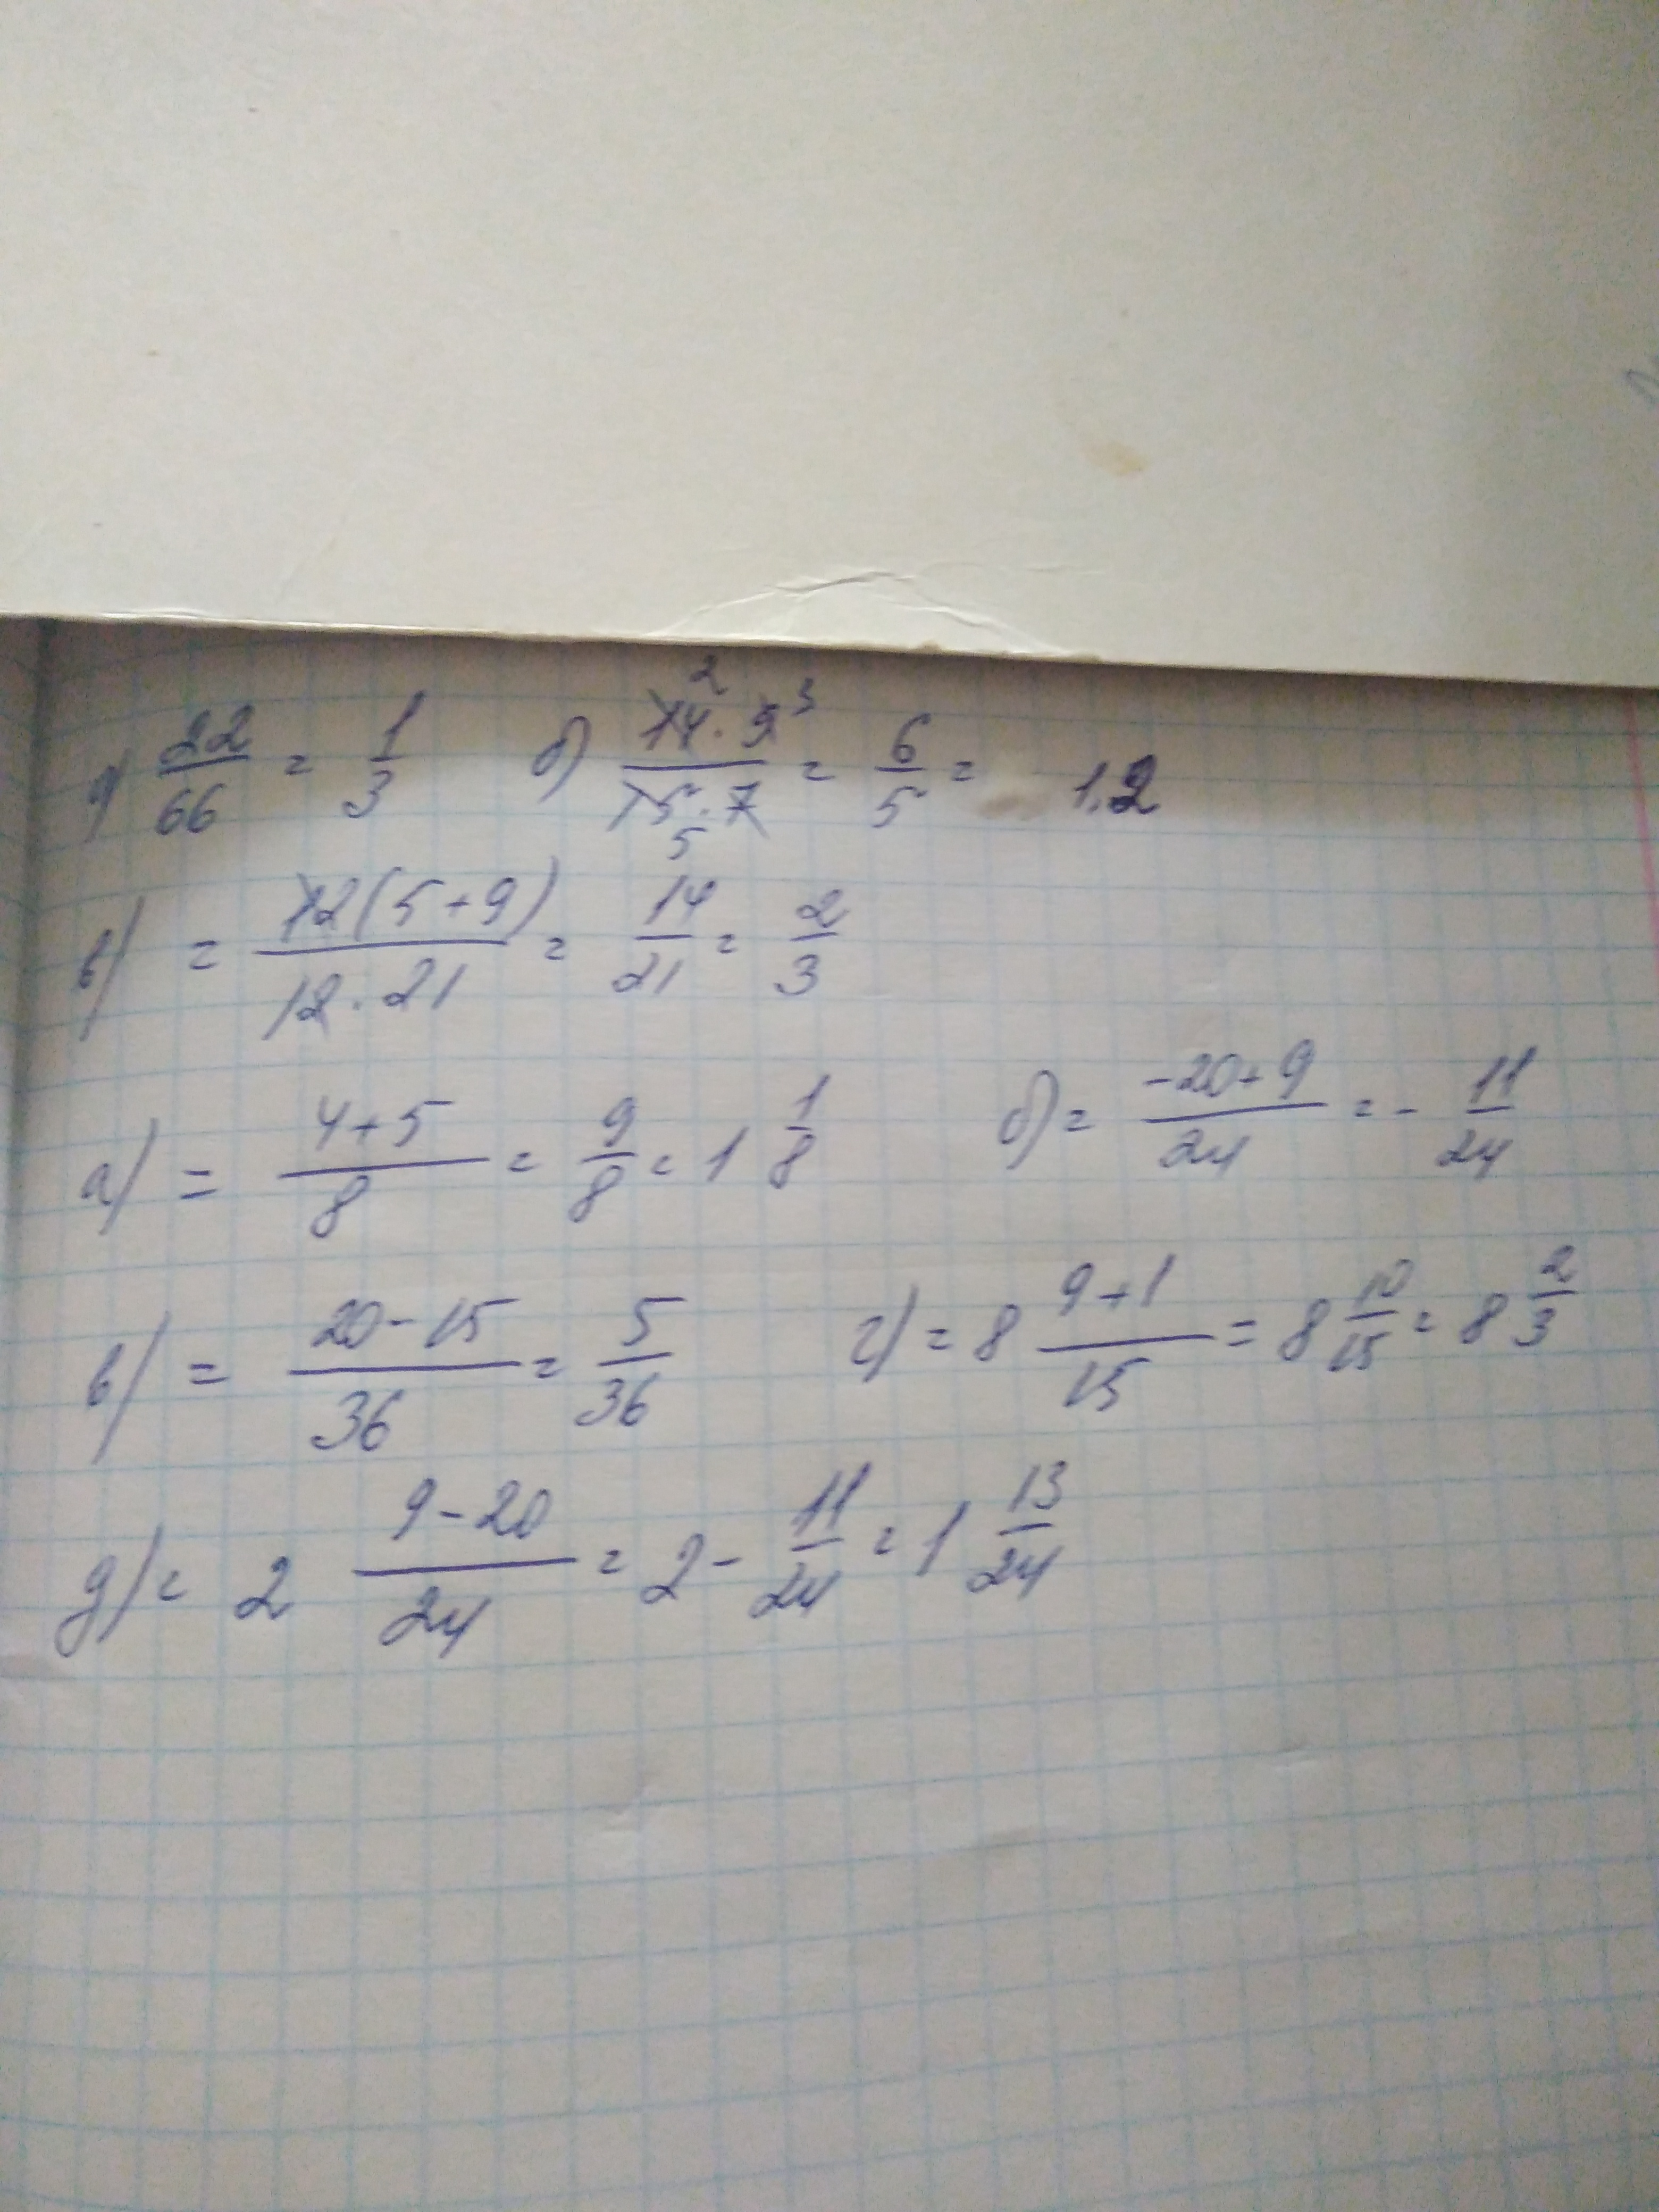 а) 22/66 = 1/3 б) 14 · 9/15 · 7 = 6/5 = 1.2
2 3
5
в) = 12(5+9)/12 · 21 = 14/21 = 2/3
а) = 4+5/8 = 9/8 = 1 1/8 б) = -20+9/24 = - 11/24
в) = 20-15/36 = 5/36 г) = 8 9+1/15 = 8 10/15 = 8 2/3
д) = 2 9-20/24 = 2 - 11/24 = 1 13/24